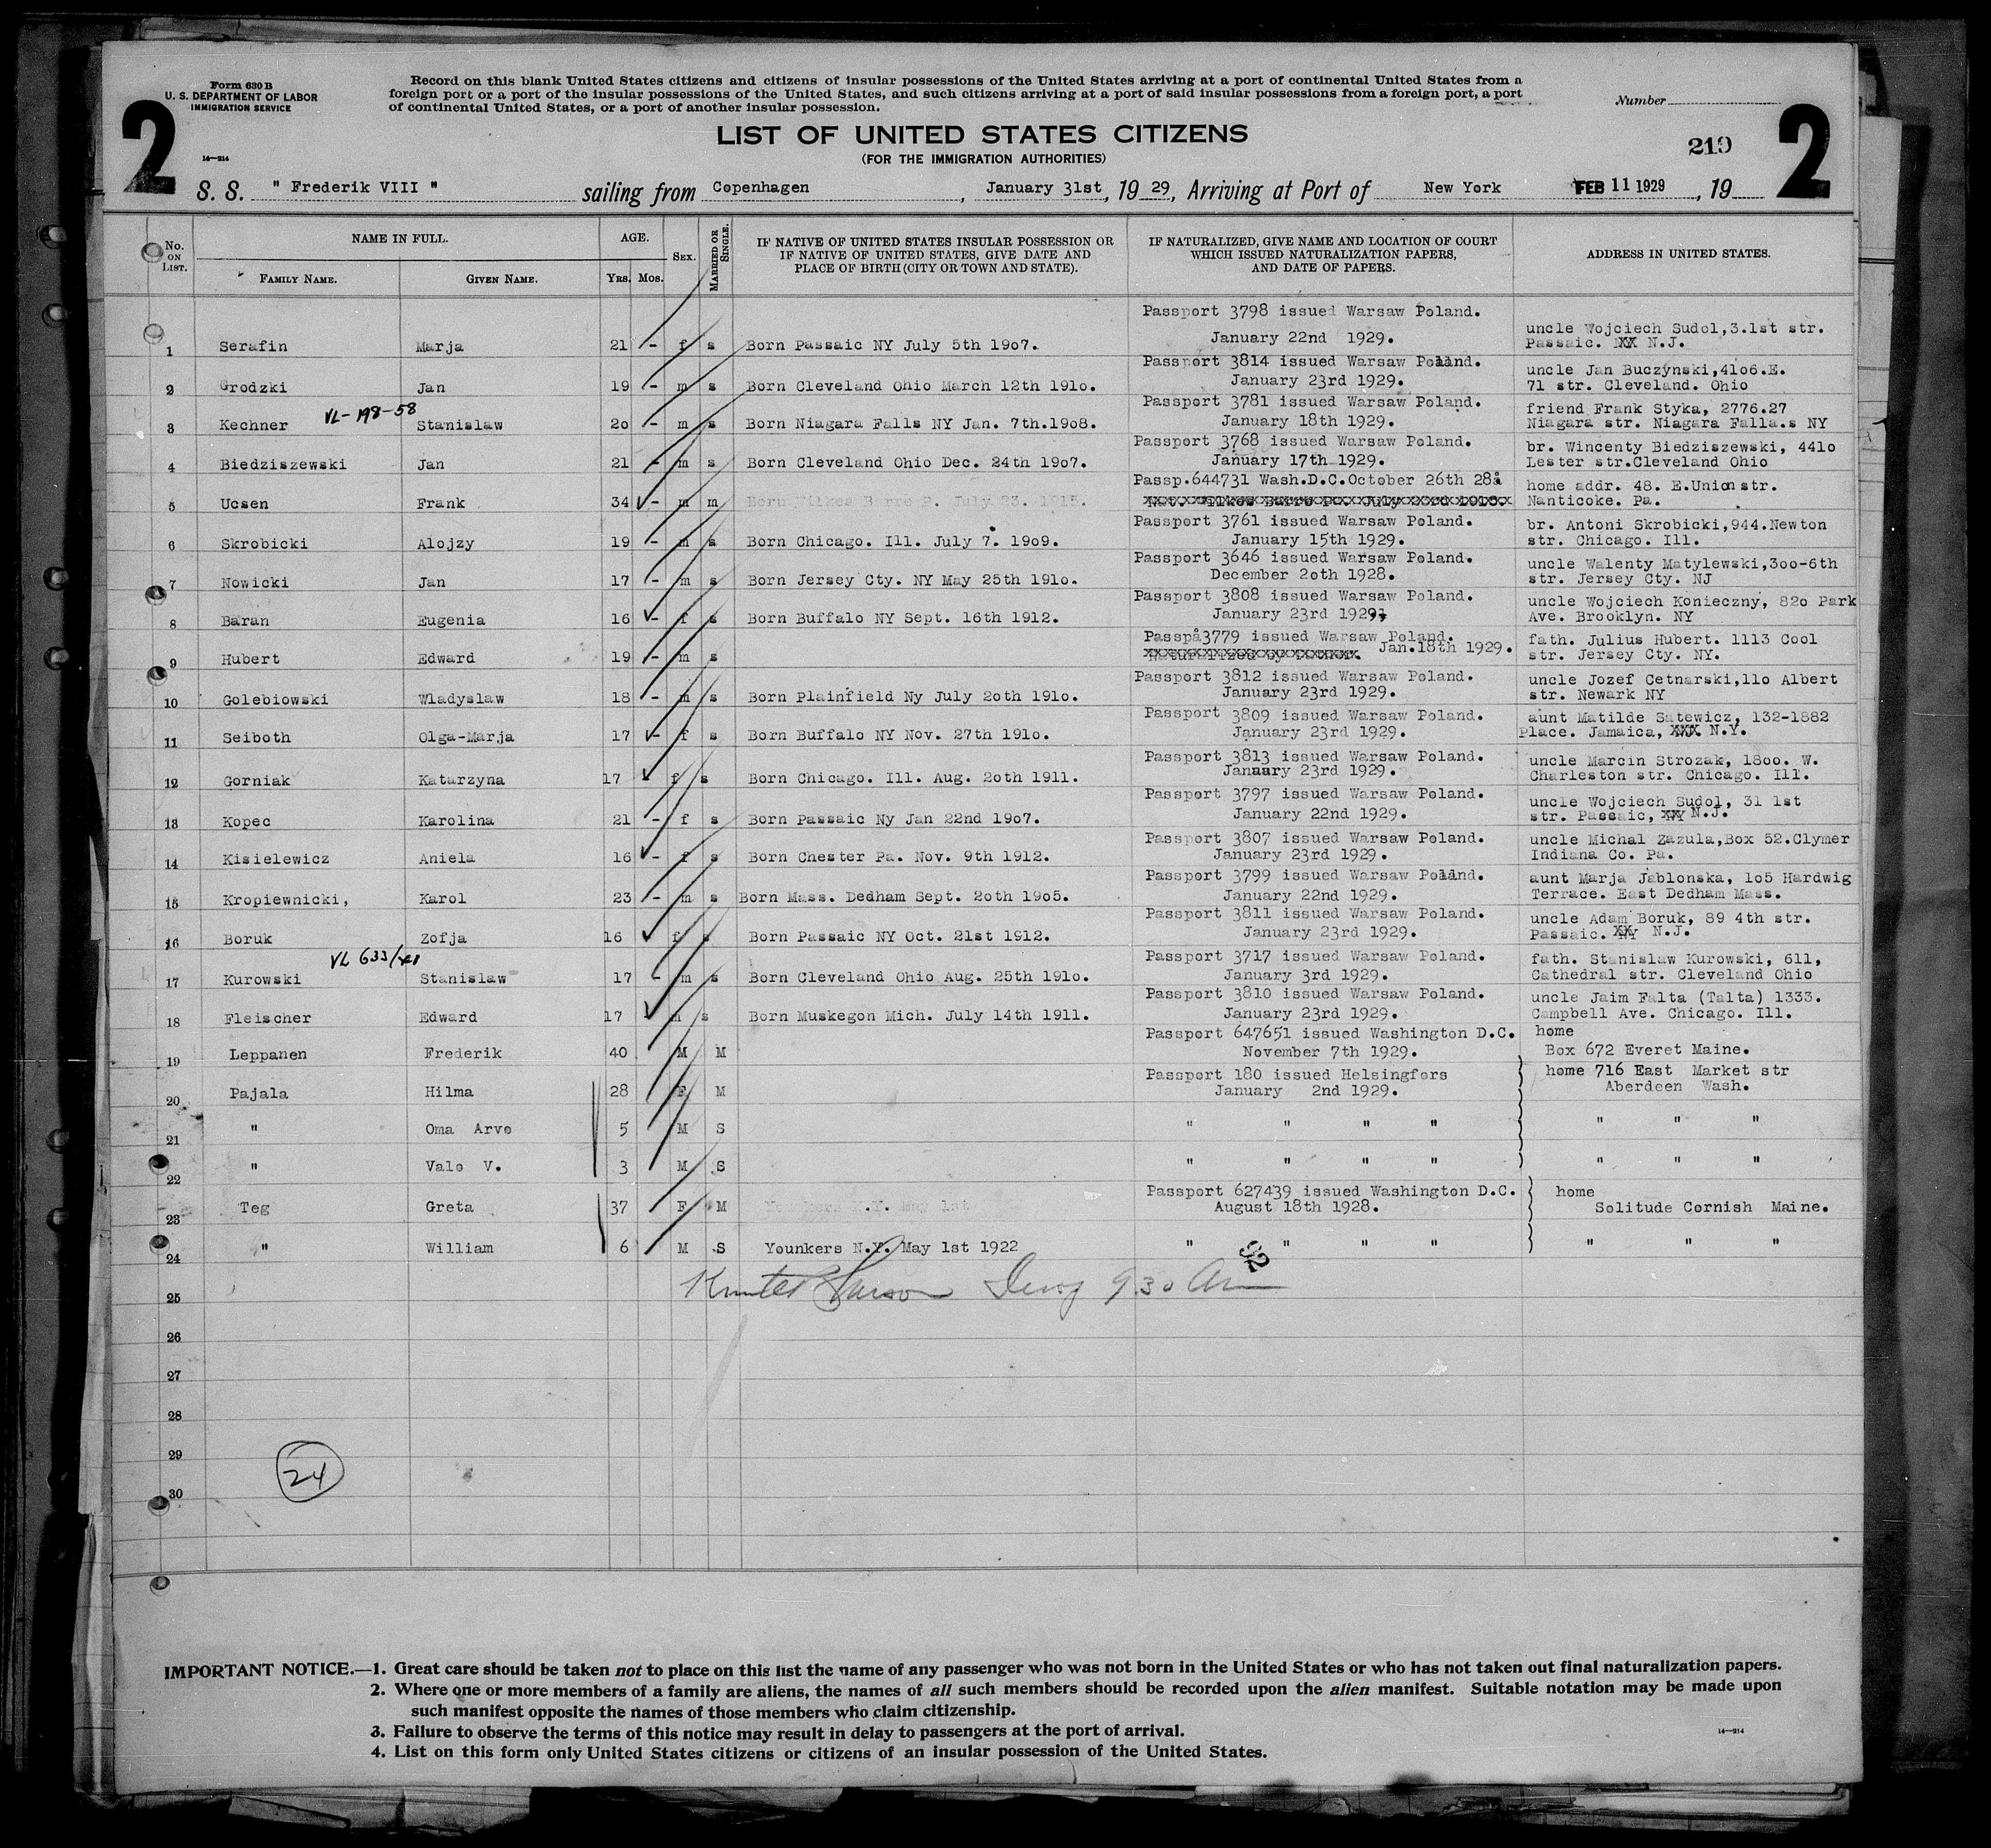 Form 630 B
U. S. DEPARTMENT OF LABOR
IMMIGRATION SERVICE
14—214
2
Record on this blank United States citizens and citizens of insular possessions of the United States arriving at a port of continental United States from a
foreign port or a port of the insular possessions of the United States, and such citizens arriving at a port of said insular possessions from a foreign port, a port
of continental United States, or a port of another insular possession.
Number
LIST OF UNITED STATES CITIZENS
(FOR THE IMMIGRATION AUTHORITIES)
219
2
S. S. " Frederik VIII " sailing from Copenhagen, January 31st, 19 29, Arriving at Port of New York FEB 11 1929, 19
No. ON LIST. NAME IN FULL. FAMILY NAME. GIVEN NAME. AGE. YRS. MOS. SEX. MARRIED OR SINGLE. IF NATIVE OF UNITED STATES INSULAR POSSESSION OR IF NATIVE OF UNITED STATES, GIVE DATE AND PLACE OF BIRTH (CITY OR TOWN AND STATE). IF NATURALIZED, GIVE NAME AND LOCATION OF COURT WHICH ISSUED NATURALIZATION PAPERS, AND DATE OF PAPERS. ADDRESS IN UNITED STATES.
1 Serafin Marja 21 - f s Born Passaic NY July 5th 19o7. Passport 3798 issued Warsaw Poland. January 22nd 1929. uncle Wojciech Sudol,3.1st str. Passaic. XX N.J.
2 Grodzki Jan 19 - m s Born Cleveland Ohio March 12th 191o. Passport 3814 issued Warsaw Poland. January 23rd 1929. uncle Jan Buczynski,41o6.E. 71 str. Cleveland. Ohio
VL-198-58
3 Kechner Stanislaw 2o - m s Born Niagara Falls NY Jan. 7th.19o8. Passport 3781 issued Warsaw Poland. January 18th 1929. friend Frank Styka, 2776.27 Niagara str. Niagara Falla.s NY
4 Biedziszewski Jan 21 - m s Born Cleveland Ohio Dec. 24th 19o7. Passport 3768 issued Warsaw Poland. January 17th 1929. br. Wincenty Biedziszewski, 441o Lester str.Cleveland Ohio
5 Ucsen Frank 34 - m m Born Wilkes Barre P. July 23. 1915. Passp.644731 Wash.D.C.October 26th 28å home addr. 48. E.Union str. Nanticoke. Pa.
6 Skrobicki Alojzy 19 - m s Born Chicago. Ill. July 7. 19o9. Passport 3761 issued Warsaw Poland. January 15th 1929. br. Antoni Skrobicki,944.Newton str. Chicago. Ill.
7 Nowicki Jan 17 - m s Born Jersey Cty. NY May 25th 191o. Passport 3646 issued Warsaw Poland. December 2oth 1928. uncle Walenty Matylewski,3oo-6th str. Jersey Cty. NJ
8 Baran Eugenia 16 - f s Born Buffalo NY Sept. 16th 1912. Passport 3808 issued Warsaw Poland. January 23rd 1929. uncle Wojciech Konieczny, 82o Park Ave. Brooklyn. NY
9 Hubert Edward 19 - m s Passpå3779 issued Warsaw Poland. Jan.18th 1929. fath. Julius Hubert. 1113 Cool str. Jersey Cty. NY.
10 Golebiowski Wladyslaw 18 - m s Born Plainfield Ny July 2oth 191o. Passport 3812 issued Warsaw Poland. January 23rd 1929. uncle Jozef Cetnarski,11o Albert str. Newark NY
11 Seiboth Olga-Marja 17 - f s Born Buffalo NY Nov. 27th 191o. Passport 3809 issued Warsaw Poland. January 23rd 1929. aunt Matilde Satewicz, 132-1882 Place. Jamaica, XXX N.Y.
12 Gorniak Katarzyna 17 f s Born Chicago. Ill. Aug. 2oth 1911. Passport 3813 issued Warsaw Poland. January 23rd 1929. uncle Marcin Strozak, 18oo. W. Charleston str. Chicago. Ill.
13 Kopec Karolina 21 - f s Born Passaic Ny Jan 22nd 19o7. Passport 3797 issued Warsaw Poland. January 22nd 1929. uncle Wojciech Sudol, 31 1st str. Passaic, XX N.J.
14 Kisielewicz Aniela 16 - f s Born Chester Pa. Nov. 9th 1912. Passport 3807 issued Warsaw Poland. January 23rd 1929. uncle Michal Zazula,Box 52.Clymer Indiana Co. Pa.
15 Kropiewnicki, Karol 23 - m s Born Mass. Dedham Sept. 2oth 19o5. Passport 3799 issued Warsaw Poland. January 22nd 1929. aunt Marja Jablonska, 1o5 Hardwig Terrace. East Dedham Mass.
16 Boruk Zofja 16 f s Born Passaic NY Oct. 21st 1912. Passport 3811 issued Warsaw Poland. January 23rd 1929. uncle Adam Boruk, 89 4th str. Passaic. XX N.J.
VL 633/
17 Kurowski Stanislaw 17 - m s Born Cleveland Ohio Aug. 25th 191o. Passport 3717 issued Warsaw Poland. January 3rd 1929. fath. Stanislaw Kurowski, 611, Cathedral str. Cleveland Ohio
18 Fleischer Edward 17 m s Born Muskegon Mich. July 14th 1911. Passport 3810 issued Warsaw Poland. January 23rd 1929. uncle Jaim Falta (Talta) 1333. Campbell Ave. Chicago. Ill.
19 Leppanen Frederik 40 M M Passport 647651 issued Washington D.C. November 7th 1929. home Box 672 Everet Maine.
20 Pajala Hilma 28 F M Passport 180 issued Helsingfors January 2nd 1929. home 716 East Market str Aberdeen Wash.
21 " Oma Arvo 5 M S " " " " " " "
22 " Valo V. 3 M S " " " " " " "
23 Teg Greta 37 F M Passport 627439 issued Washington D.C. August 18th 1928. home Solitude Cornish Maine.
24 " William 6 M S Younkers N.Y. May 1st 1922 " " " " " " "
92
25 9.30 Am
26
27
28
29
30
24
IMPORTANT NOTICE.—1. Great care should be taken not to place on this list the name of any passenger who was not born in the United States or who has not taken out final naturalization papers.
2. Where one or more members of a family are aliens, the names of all such members should be recorded upon the alien manifest. Suitable notation may be made upon
such manifest opposite the names of those members who claim citizenship.
3. Failure to observe the terms of this notice may result in delay to passengers at the port of arrival.
4. List on this form only United States citizens or citizens of an insular possession of the United States.
14—214